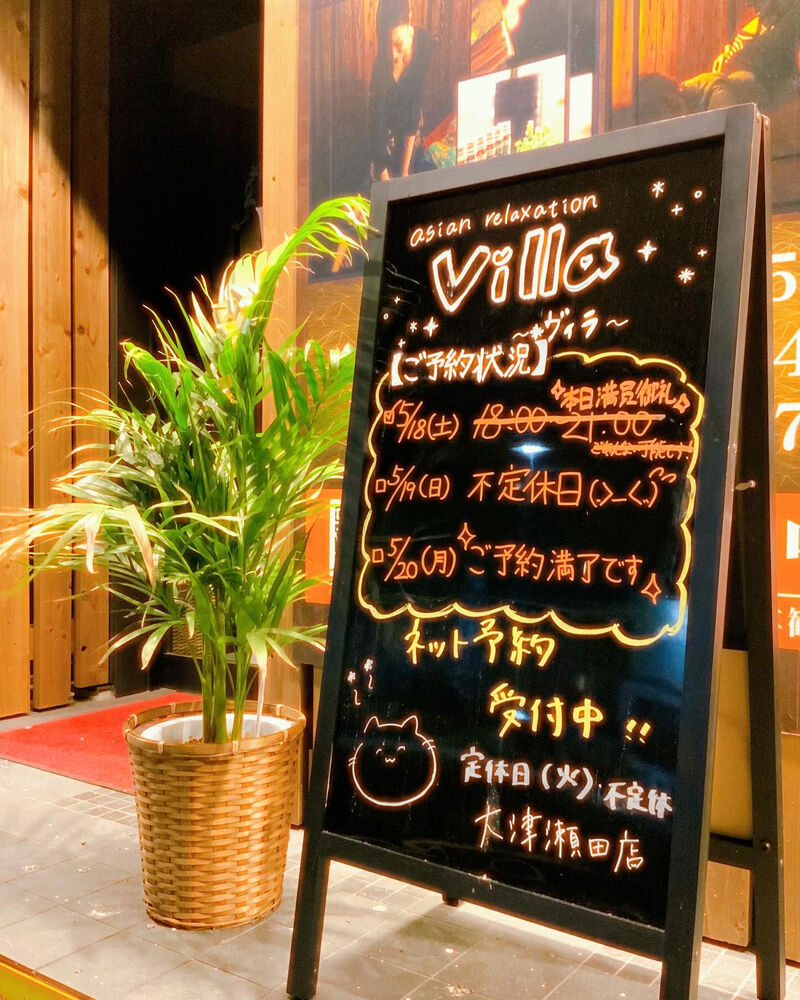 asian relaxation
Villa
～ヴィラ～
【ご予約状況】
本日満員御礼
5/18(土) 18:00 21:00
5/19(日) 不定休日(>_<)
5/20(月) ご予約満了です
ネット予約
受付中!!
定休日(火)不定休
大津瀬田店
5
4
7